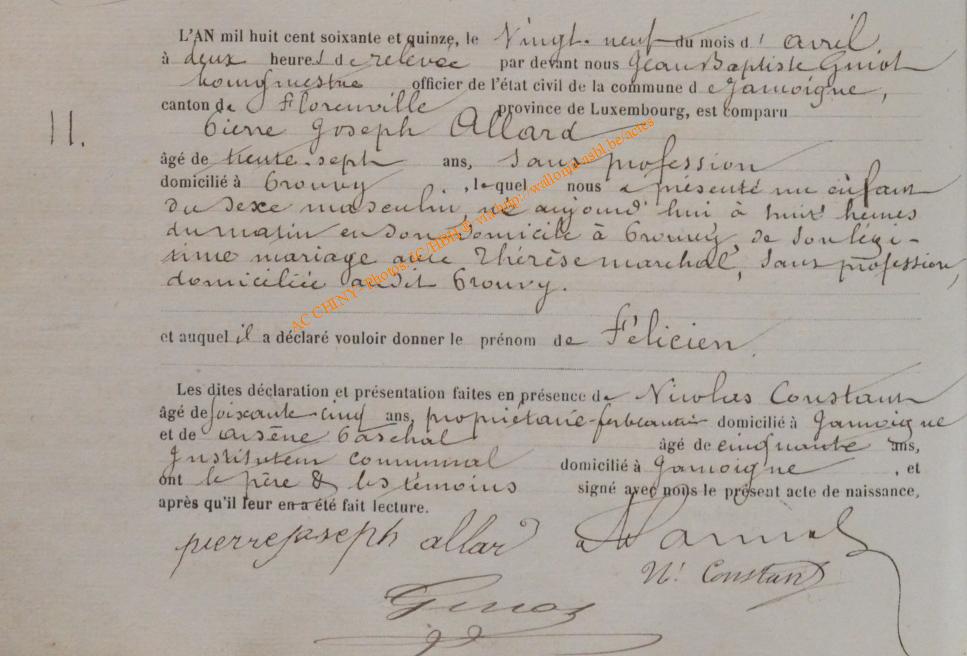 L'AN mil huit cent soixante et quinze, le Vingt-neuf du mois d' avril
à deux heures de relevée par devant nous Jean Baptiste Guiot
bourgmestre officier de l'état civil de la commune de Jamoigne,
canton de Florenville province de Luxembourg, est comparu
Pierre Joseph Allard
11.
âgé de trente-sept ans, sans profession
domicilié à Prouvy, lequel nous a présenté un enfant
du sexe masculin, né aujourd'hui à huit heures
du matin en son domicile à Prouvy, de son légi-
time mariage avec Thérèse marchal, sans profession,
domiciliée audit Prouvy.
AC CHINY - Photos JC HBILE via http://wallonia.asbl.be/actes
et auquel il a déclaré vouloir donner le prénom de Félicien.
Les dites déclaration et présentation faites en présence de Nicolas Constant
âgé de soixante-cinq ans, propriétaire-ferblantier domicilié à Jamoigne
et de arsène Paschal âgé de cinquante ans,
Instituteur communal domicilié à Jamoigne, et
ont le père & les témoins signé avec nous le présent acte de naissance,
après qu'il leur en a été fait lecture.
pierre joseph allard
N. Constant